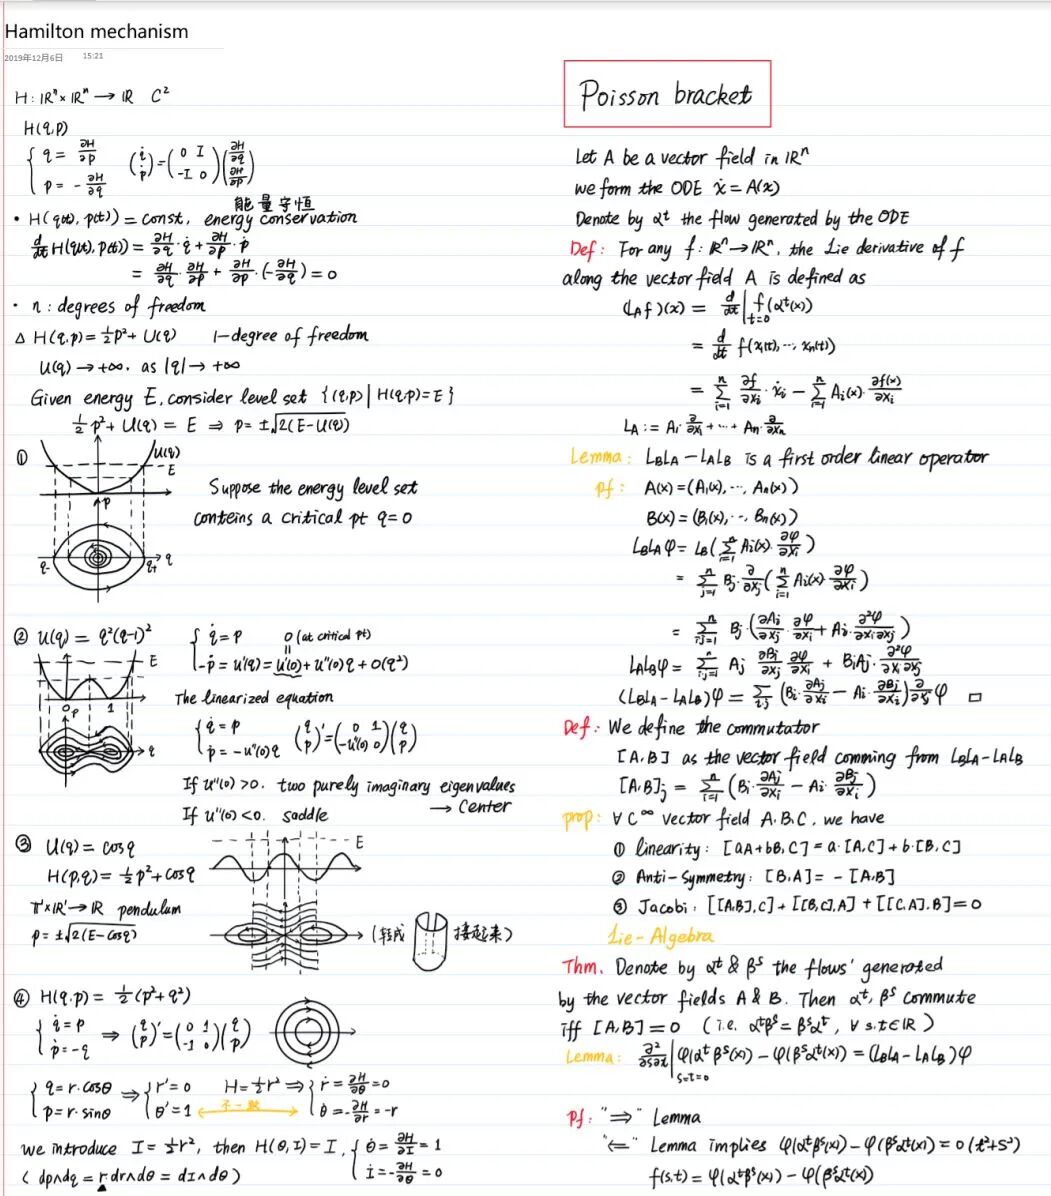 Hamilton mechanism
2019年12月6日 15:21
H : ℝⁿ × ℝⁿ → ℝ C²
H(q,p)
{ q = ∂H/∂p
p = - ∂H/∂q
(q̇ ṗ) = (0 I -I 0)(∂H/∂q ∂H/∂p)
能量守恒
• H(q(t), p(t)) = const, energy conservation
d/dt H(q(t), p(t)) = ∂H/∂q · q̇ + ∂H/∂p · ṗ
= ∂H/∂q · ∂H/∂p + ∂H/∂p · (-∂H/∂q) = 0
• n : degrees of freedom
△ H(q,p) = ½p² + U(q) 1-degree of freedom
U(q) → +∞. as |q| → +∞
Given energy E, consider level set {(q,p) | H(q,p) = E}
½p² + U(q) = E ⇒ p = ±√2(E-U(q))
① U(q) E p q- q+ q
Suppose the energy level set
conteins a critical pt q=0
② U(q) = q²(q-1)²
E 0 1 p q
{ q̇ = p 0 (at critical pt)
-ṗ = U'(q) = U'(0) + U''(0)q + O(q²)
The linearized equation
{ q̇ = p
ṗ = -U''(0)q
(q p)' = (0 1 -U''(0) 0)(q p)
If U''(0) > 0. two purely imaginary eigenvalues
→ center
If U''(0) < 0. saddle
③ U(q) = cos q
E
H(p,q) = ½p² + cos q
𝕋¹ × ℝ¹ → ℝ pendulum
p = ±√2(E-cos q)
接起来)
④ H(q,p) = ½(p² + q²)
{ q̇ = p
ṗ = -q
⇒ (q p)' = (0 1 -1 0)(q p)
{ q = r·cosθ
p = r·sinθ
⇒ { r' = 0
θ' = 1
不一致
H = ½r² ⇒ { ṙ = ∂H/∂θ = 0
θ̇ = -∂H/∂r = -r
we introduce I = ½r², then H(θ,I) = I, { θ̇ = ∂H/∂I = 1
İ = -∂H/∂θ = 0
( dp∧dq = r dr∧dθ = dI∧dθ )
Poisson bracket
Let A be a vector field in ℝⁿ
we form the ODE ẋ = A(x)
Denote by αᵗ the flow generated by the ODE
Def : For any f : ℝⁿ → ℝⁿ, the Lie derivative of f
along the vector field A is defined as
(L_A f)(x) = d/dt |_{t=0} f(αᵗ(x))
= d/dt f(x₁(t), ···, xₙ(t))
= Σ_{i=1}^n ∂f/∂xᵢ · ẋᵢ - Σ_{i=1}^n Aᵢ(x) · ∂f(x)/∂xᵢ
L_A := A₁ ∂/∂x₁ + ··· + Aₙ · ∂/∂xₙ
Lemma : L_B L_A - L_A L_B is a first order linear operator
pf : A(x) = (A₁(x), ···, Aₙ(x))
B(x) = (B₁(x), ···, Bₙ(x))
L_B L_A φ = L_B(Σ_{i=1}^n Aᵢ(x) · ∂φ/∂xᵢ)
= Σ_{j=1}^n Bⱼ · ∂/∂xⱼ (Σ_{i=1}^n Aᵢ(x) · ∂φ/∂xᵢ)
= Σ_{i,j=1}^n Bⱼ · (∂Aᵢ/∂xⱼ · ∂φ/∂xᵢ + Aᵢ · ∂²φ/∂xᵢ∂xⱼ)
L_A L_B φ = Σ_{i,j=1}^n Aⱼ ∂Bᵢ/∂xⱼ ∂φ/∂xᵢ + BᵢAⱼ · ∂²φ/∂xᵢ∂xⱼ
(L_B L_A - L_A L_B)φ = Σ_{i,j} (Bᵢ · ∂Aⱼ/∂xᵢ - Aᵢ · ∂Bⱼ/∂xᵢ) ∂/∂xⱼ φ □
Def : We define the commutator
[A,B] as the vector field comming from L_B L_A - L_A L_B
[A,B]ⱼ = Σ_{i=1}^n (Bᵢ · ∂Aⱼ/∂xᵢ - Aᵢ · ∂Bⱼ/∂xᵢ)
prop : ∀ C^∞ vector field A.B.C, we have
① linearity : [aA+bB, C] = a·[A,C] + b·[B,C]
② Anti-Symmetry : [B,A] = -[A,B]
③ Jacobi : [[A,B],C] + [[B,C],A] + [[C,A],B] = 0
Lie-Algebra
Thm. Denote by αᵗ & βˢ the flows generated
by the vector fields A & B. Then αᵗ, βˢ commute
iff [A,B] = 0 (i.e. αᵗβˢ = βˢαᵗ, ∀ s,t∈ℝ)
Lemma : ∂²/∂s∂t |_{s=t=0} φ(αᵗβˢ(x)) - φ(βˢαᵗ(x)) = (L_B L_A - L_A L_B)φ
Pf : "⇒" Lemma
"⇐" Lemma implies φ(αᵗβˢ(x)) - φ(βˢαᵗ(x)) = o(t²+s²)
f(s,t) = φ(αᵗβˢ(x)) - φ(βˢαᵗ(x))